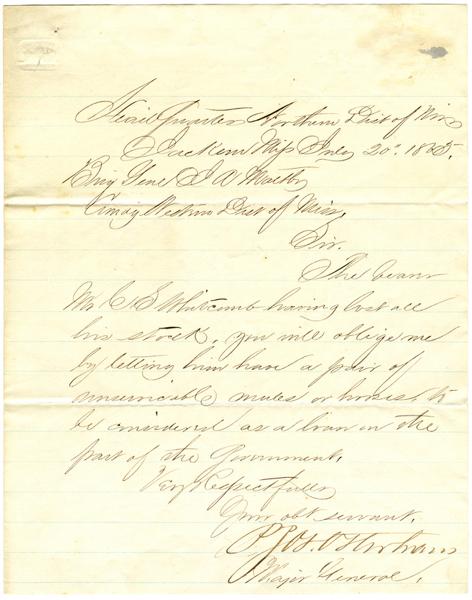 Head Quarters Northern Dist of Miss
Jackson Miss July 20th 1865.
Brig Genl J A Maltby
Comdg Western Dist of Miss,
Sir.
The bearer
Mr C. E. Whitcomb having lost all
his stock, you will oblige me
by letting him have a pair of
unservicable mules or horses, to
be considered as a loan on the
part of the Government.
Very Respectfully
Your obt servant.
P. Jos. Osterhaus
Major General.